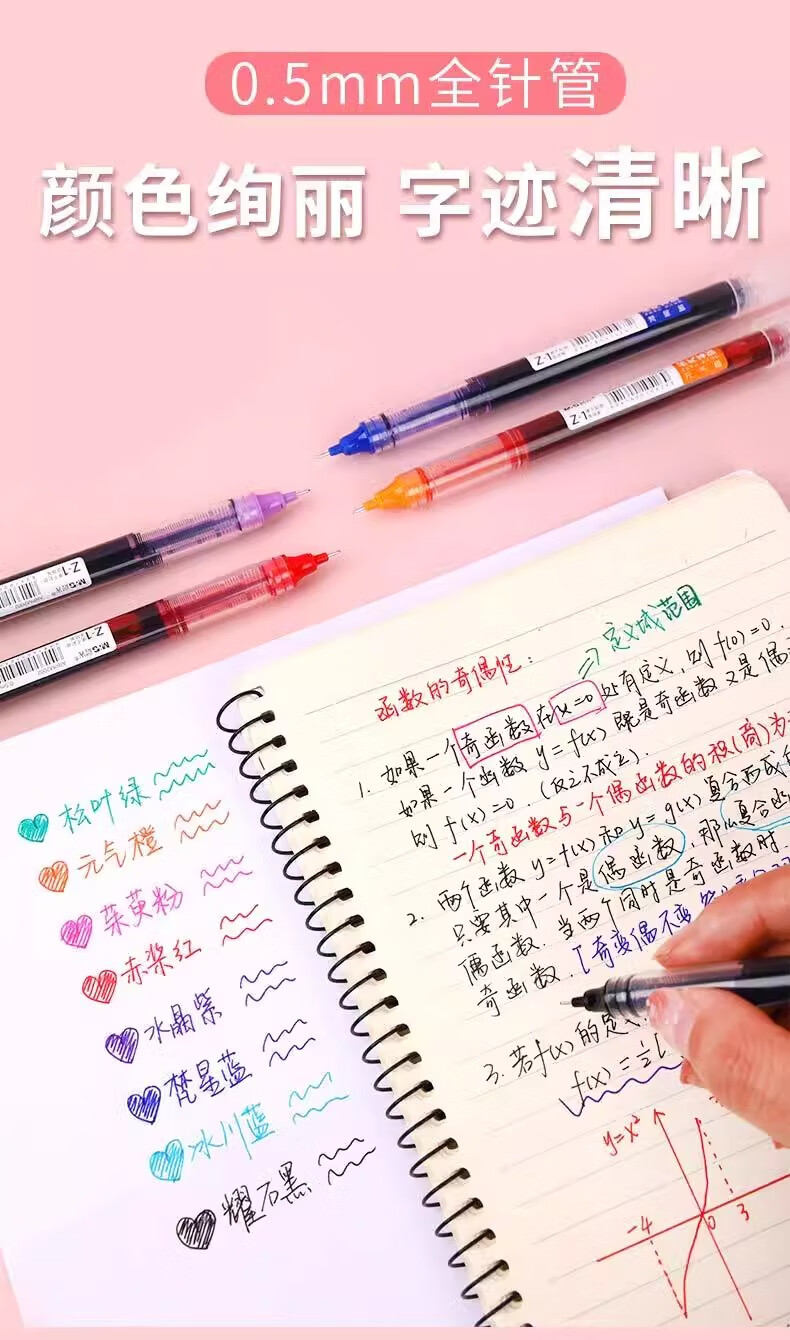 0.5mm全针管
颜色绚丽 字迹清晰
Z-1
Z-1
Z-1
M&G
Z-1
松叶绿
元气橙
茱萸粉
赤桨红
水晶紫
梵星蓝
冰川蓝
耀石黑
函数的奇偶性：
⇒定义域范围
1. 如果一个奇函数在x=0处有定义，则f(0)=0.
如果一个函数y=f(x)既是奇函数又是偶
则f(x)=0.（反之不成立）.
一个奇函数与一个偶函数的积(商)为
2. 两个函数y=f(x)和y=g(x)复合而成的
只要其中一个是偶函数，那么复合函
儒函数.当两个同时是奇函数时.
奇函数.[奇变偶不变
3. 若f(x)的定义
f(x)=½[
y=x²
-4 0 3